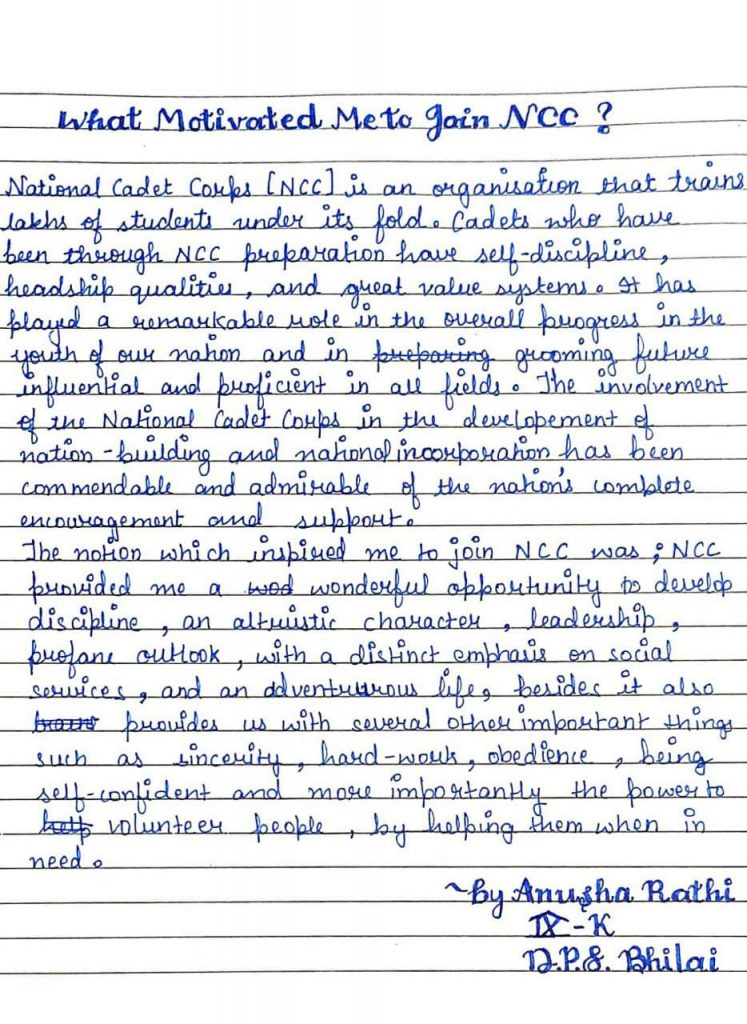 What Motivated Me to Join NCC ?
National Cadet Corps [NCC] is an organisation that trains
lakhs of students under its fold. Cadets who have
been through NCC preparation have self-discipline,
headship qualities, and great value systems. It has
played a remarkable role in the overall progress in the
youth of our nation and in preparing grooming future
influential and proficient in all fields. The involvement
of the National Cadet Corps in the developement of
nation-building and national incorporation has been
commendable and admirable of the nation's complete
encouragement and support.
The notion which inspired me to join NCC was ; NCC
provided me a wonderful opportunity to develop
discipline, an altruistic character, leadership,
profane outlook, with a distinct emphasis on social
services, and an adventurous life, besides it also
provides us with several other important things
such as sincerity, hard-work, obedience, being
self-confident and more importantly the power to
help volunteer people, by helping them when in
need.
~By Anusha Rathi
IX-K
D.P.S. Bhilai